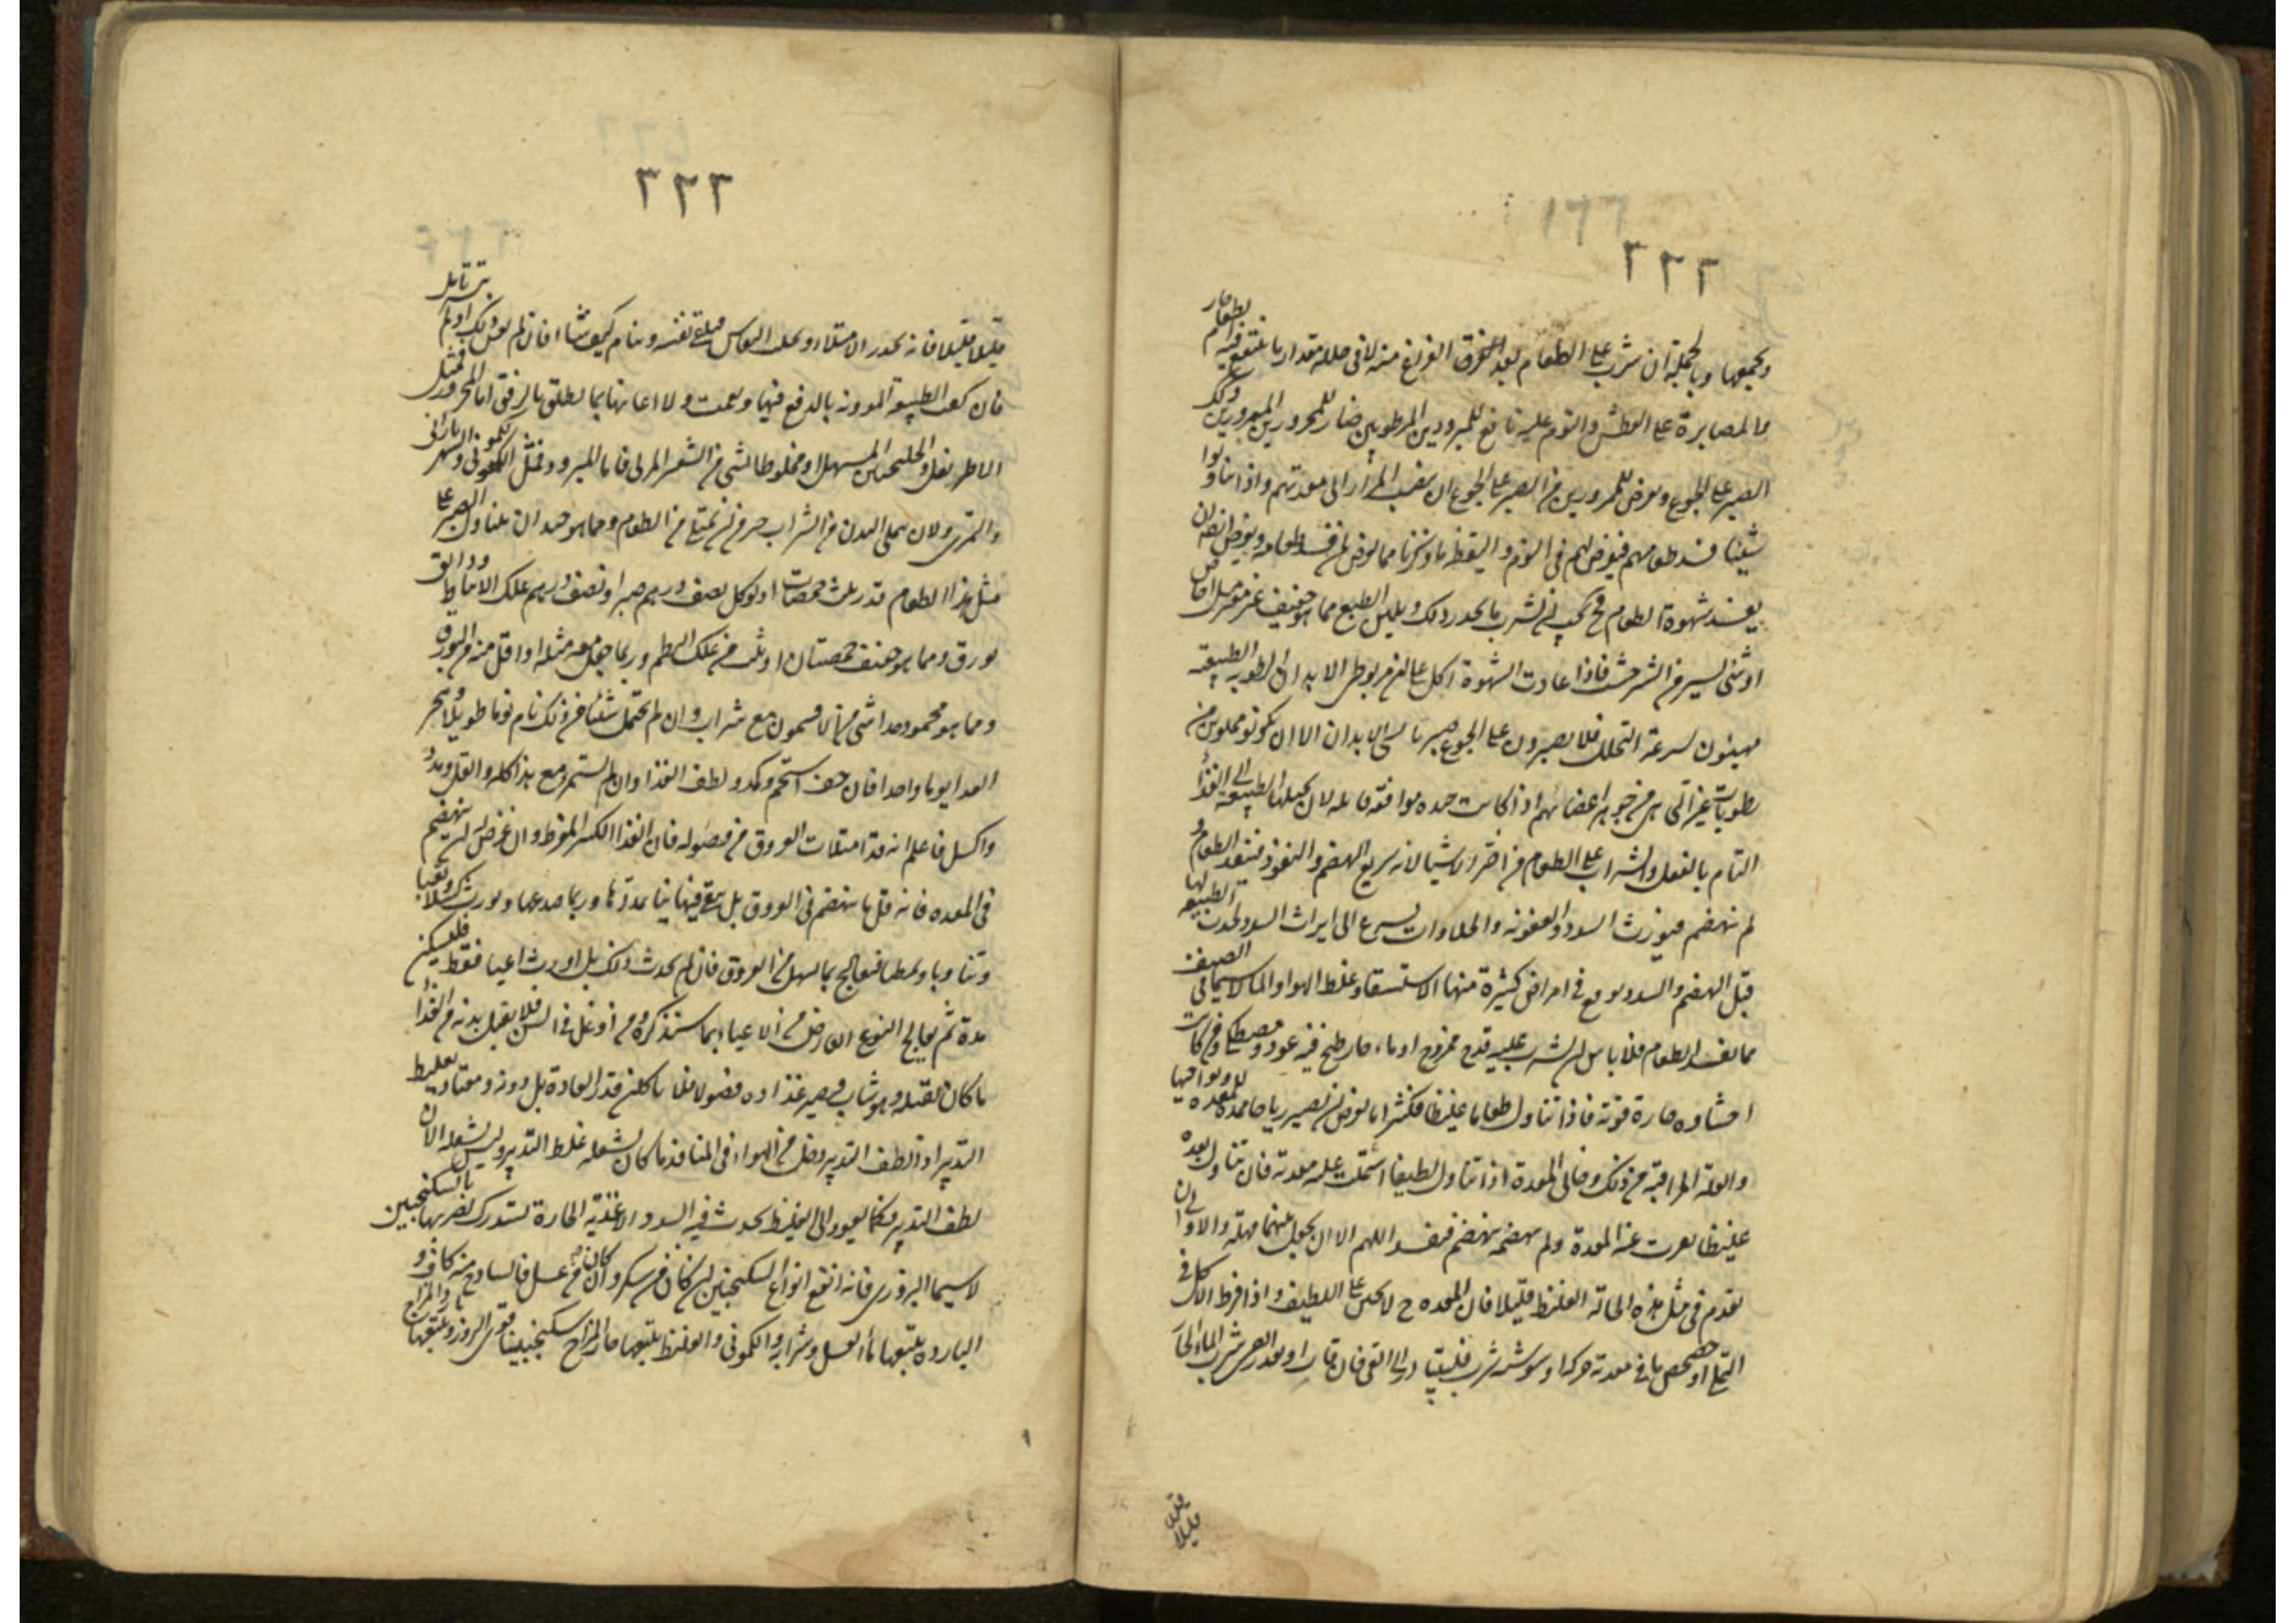 ٢٢٢
ويجمعها وبالجملة ان شرب على الطعام بعد الفراغ منه لا في خلله مقدار ما ينتفع فيه الطعام
فالمصابرة على العطش والنوم عليه نافع للمبرودين المرطوبين ضار للمحرورين الممرورين وكذلك
الصبر على الجوع ويعرض للممرورين من الصبر على الجوع ان ينصب المرار الى معدتهم واذا تناولوا
شيئا فسد طعامهم فيعرض لهم في النوم واليقظة ما ذكرنا مما يعرض لمن فسد طعامه ويعرض ايضا ان
يفسد شهوة الطعام فح يجب ان يشرب ما يحدر ذلك ويلين الطبع مما هو خفيف غير مؤثر مثل الاجاص
او شئ يسير من الشيرخشت فاذا عادت الشهوة اكل على ان مرطوبى الابدان الرطوبة الطبيعية
مهيئون لسرعة التحلل فلا يصبرون على الجوع صبر يابسى الابدان الا ان يكونوا مملوين من
رطوبات غير التى هى من جوهر اعضائهم اذا كانت جيدة موافقة قابلة لان يحيلها الطبيعة الى الغذاء
التام بالفعل والشراب على الطعام من اضر الاشيا لانه سريع الهضم والنفوذ فينفذ الطعام و
لم ينهضم فيورث السدد والعفونة والحلاوات يسرع الى ايراث السدد لجذب الطبيعة لها
قبل الهضم والسدد يوقع في امراض كثيرة منها الاستسقا وغلظ الهوا والما لاسيما في الصيف
مما يفسد الطعام فلا باس ان يشرب عليه قدح ممزوج او ماء حار طبخ فيه عود ومصطكى ومن كانت
احشاوه حارة قوية فاذا تناول طعاما غليظا فكثيرا ما يعرض ان يصير رياحا ممددة للمعدة ونواحيها
والعلة المراقية من ذلك وخالى المعدة اذا تناول لطيفا اشتملت عليه معدته فان تناول بعده
غليظا نفرت عنه المعدة ولم يهضمه ففسد اللهم الا ان يجعل بينهما مهلة والاولى ان
يقدم في مثل هذه الحالة الغليظ قليلا فان المعدة ح لا يجبن على اللطيف واذا فرط الاكل في
التملئ او خضخض ما في معدته حركة او شوشه شرب فليبادر الى القى فان فات او تعذر القى شرب الماء الحار
قليلا قليلا
٢٢٣
قليلا قليلا فانه يحدر الامتلاء ويجلب النعاس فيلقى نفسه وينام كيف شاء فان لم يغن ذلك او لم يتيسر تامل
فان كفت الطبيعة المؤونة بالدفع فبها ونعمت والا اعانها بما يطلق بالرفق اما المحرور فمثل
الاطريفل والجلنجبين المسهل او مخلوطا بشئ من التمر المربى واما المبرود فمثل الكمونى والشهرياران
والتمرى ولان يمتلى البدن من الشراب خير من ان يمتلئ من الطعام ومما هو جيد ان يتناول الصبر على
مثل هذا الطعام قدر ثلث حمصات او يوكل نصف درهم صبر او نصف درهم علك الانباط ودانق
بورق ومما هو خفيف حمصتان او ثلث من علك البطم وربما جعل معه مثله او اقل منه من البورق
ومما هو محمود جدا شئ من الافتيمون مع شراب وان لم يحتمل شيئا من ذلك نام نوما طويلا وهجر
الغدا يوما واحدا فان خف استحم وكمد ولطف الغذا وان لم يستمر مع هذا كله واثقل ومدد
واكسل فاعلم انه قد امتلات العروق من فضوله فان الغذا الكثير المفرط وان عرض له ان ينهضم
في المعدة فانه قل ما ينهضم في العروق بل يبقى فيها نيا يمددها وربما صدعها ويورث كسلا وتمطيا
وتثاوبا فليعالج بما يسهل من العروق فان لم يحدث ذلك بل اورث اعيا فقط فليسكن
مدة ثم يعالج النوع العارض من الاعياء بما سنذكره ومن اوغل في السن فلا يقبل بدنه من الغذا
ما كان يقبله وهو شاب فيصير غذاوه فضولا فلا ياكلن قدر العادة بل دونه ومعتاد تغليظ
التدبير اذا لطف التدبير دخل من الهواء في المنافذ ما كان يشغله غلظ التدبير وليس يشغله الان
لطف التدبير فكما يعود الى التغليظ يحدث فيه السدد الاغذية الحارة تستدرك مضرتها بالسكنجبين
لاسيما البزورى فانه انفع انواع السكنجبين ان كان من سكر وان كان من عسل فالساذج منه كاف و
الباردة يتبعها ماء العسل وشرابه والكمونى والغليظ يتبعها حار المزاج سكنجبينا قوى البزور ويتبعها بارد المزاج